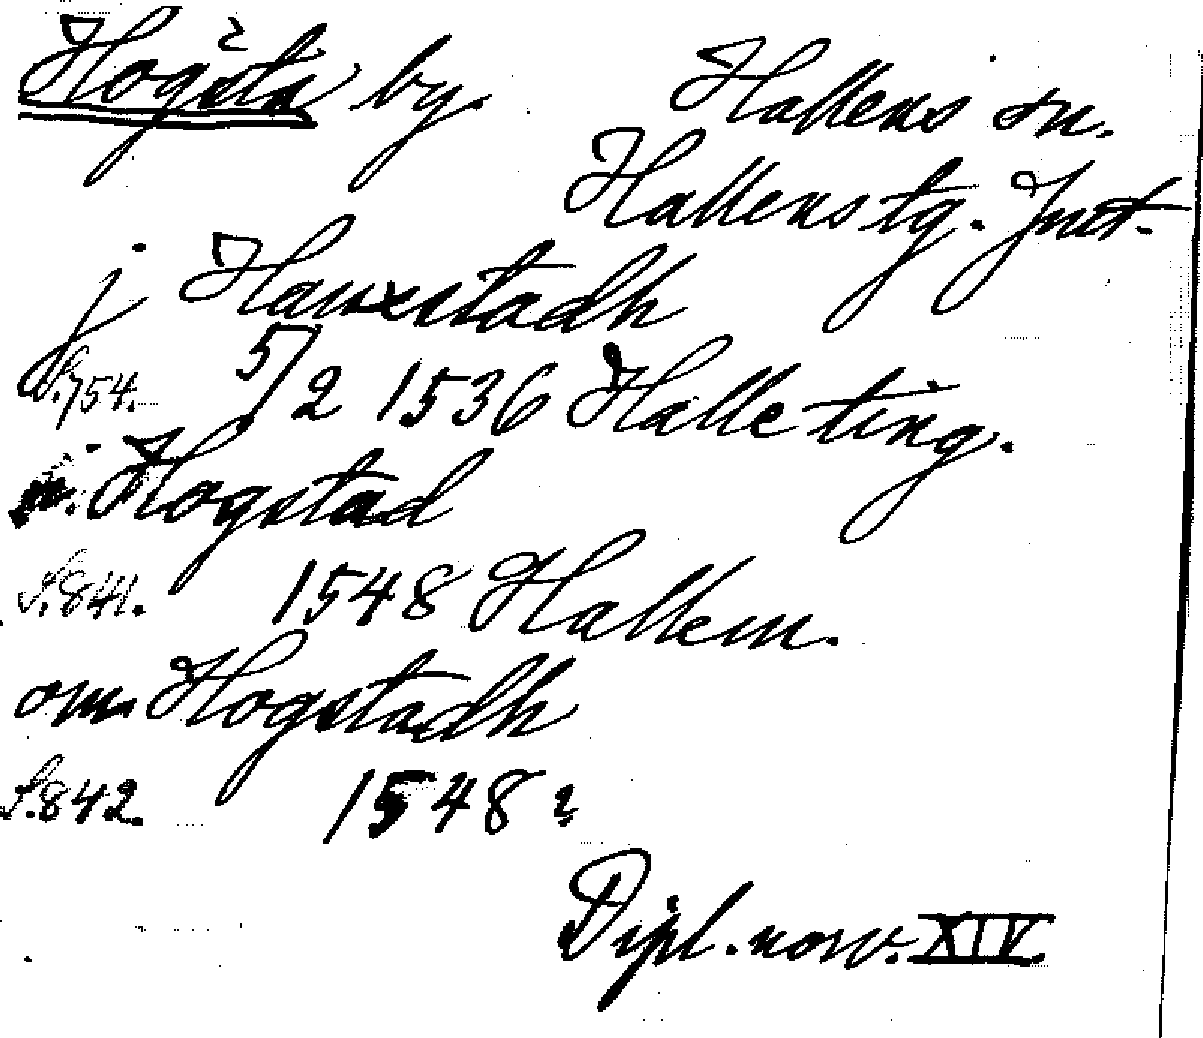 Hogsta by. Hallens sn.
2
Hallens tg. Jmt.
j Hauxstadh
S. 754. 5/2 1536 Halle ting.
i Hogstad
S. 841. 1548 Hallem.
om Hogstadh
S. 842. 1548
Dipl. norv. XIV.